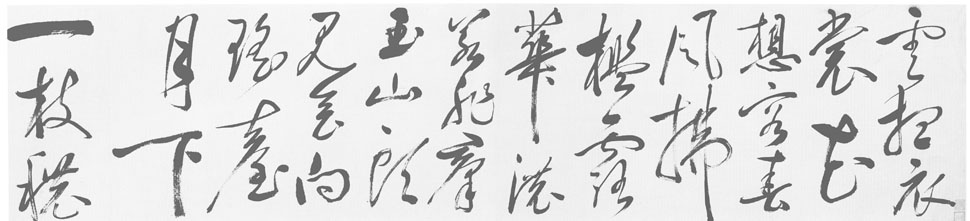 雲想衣
裳花
想容春
風拂
檻露
華濃
若非羣
玉山頭
見會向
瑤臺
月下
一枝穠